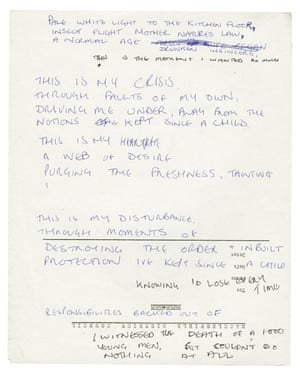 PALE WHITE LIGHT TO THE KITCHEN FLOOR,
INSECT FLIGHT MOTHER NATURES LAW,
A NORMAL AGE
DRUNKEN INSINCERE
THIS IS THE MOMENT I WANTED SO MUCH
THIS IS MY CRISIS
THROUGH FAULTS OF MY OWN,
DRIVING ME UNDER, AWAY FROM THE
NOTIONS KEPT SINCE A CHILD
THIS IS MY
A WEB OF DESIRE
PURGING THE FRESHNESS, TAINTING
THIS IS MY DISTURBANCE,
THROUGH MOMENTS OF
DESTROYING THE ORDER + INBUILT
PROTECTION IVE KEPT SINCE A CHILD
KNOWING ID LOSE EVERY
TIME
RESPONSIBILITIES BACKED OUT OF
I WITNESSED THE DEATH OF A 1000
YOUNG MEN, BUT COULDN'T DO
NOTHING AT ALL